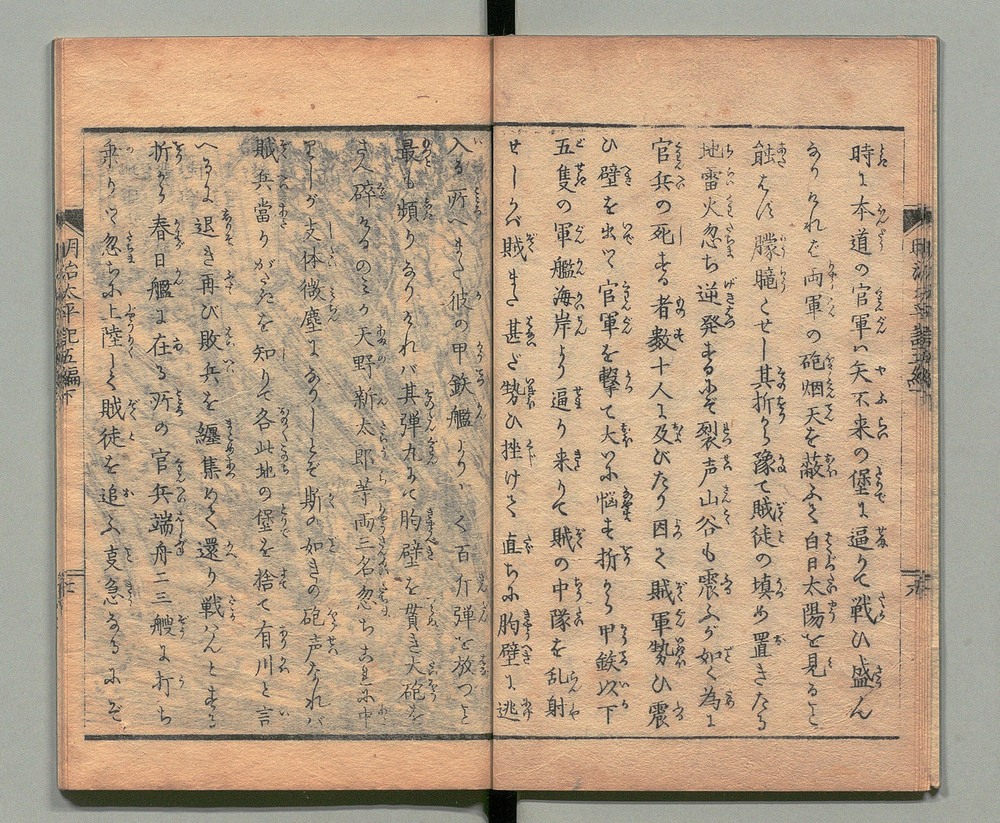 時に本道の官軍ハ矢不来の堡に逼りて戦ひ盛ん
なりけれど両軍の砲烟天を蔽ふて白日太陽を見ること
能はず朦朧とせし其折から豫て賊徒の填め置きたる
地雷火忽ち逆発するにぞ裂声山谷も震ふが如く為に
官兵の死する者数十人に及びたり因て賊軍勢ひ震
ひ壁を出て官軍を撃て大いに悩す折から甲鉄以下
五隻の軍艦海岸より逼り来りて賊の中隊を乱射
せしかバ賊また甚だ勢ひ挫けて直ちに胸壁に逃
入る所へまた彼の甲鉄艦より百斤弾を放つこと
最も頻りなりけれバ其弾丸にて胸壁を貫き大砲を
さへ碎けるのミか天野新太郎等両三名忽ち
としが支体微塵になりしとぞ斯の如きの砲声なれバ
賊兵當りがたきを知りて各此地の堡を捨て有川と言
へるに退き再び敗兵を纏集めて還り戦はんとする
折から春日艦に在る所の官兵端舟二三艘に打ち
乗りつゝ忽ちに上陸して賊徒を追ふ事急なるにぞ
明治太平記五編下